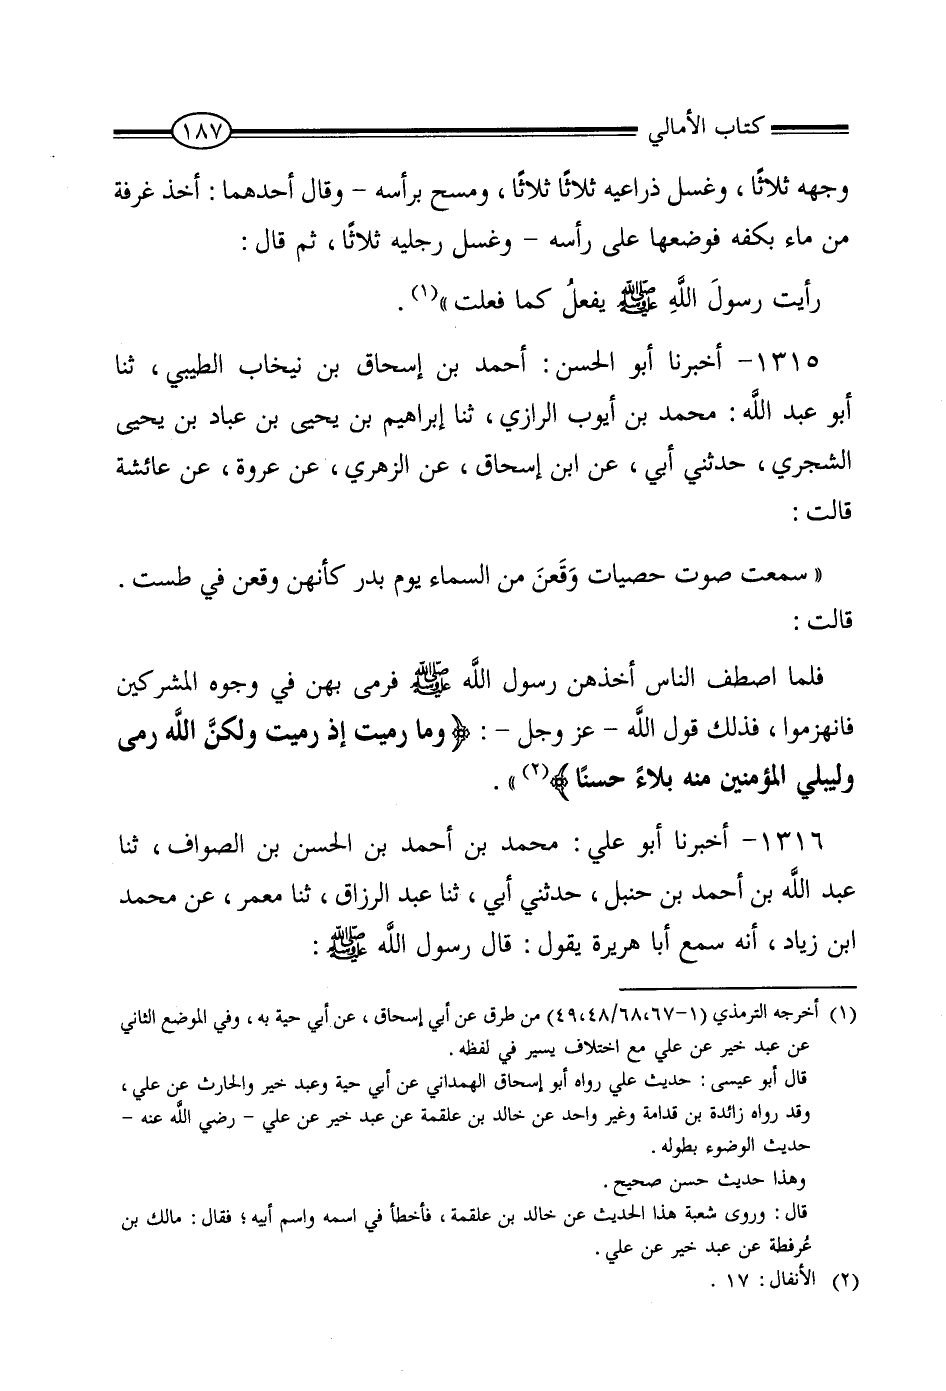 كتاب الأمالي ١٨٧
وجهه ثلاثًا ، وغسل ذراعيه ثلاثًا ثلاثًا ، ومسح برأسه – وقال أحدهما : أخذ غرفة
من ماء بكفه فوضعها على رأسه – وغسل رجليه ثلاثًا ، ثم قال :
رأيت رسولَ اللَّهِ ﷺ يفعلُ كما فعلت »(١) .
١٣١٥– أخبرنا أبو الحسن : أحمد بن إسحاق بن نيخاب الطيبي ، ثنا
أبو عبد اللَّه : محمد بن أيوب الرازي ، ثنا إبراهيم بن يحيى بن عباد بن يحيى
الشجري ، حدثني أبي ، عن ابن إسحاق ، عن الزهري ، عن عروة ، عن عائشة
قالت :
« سمعت صوت حصيات وَقَعنَ من السماء يوم بدر كأنهن وقعن في طست .
قالت :
فلما اصطف الناس أخذهن رسول اللَّه ﷺ فرمى بهن في وجوه المشركين
فانهزموا ، فذلك قول اللَّه – عز وجل – : ﴿ وما رميت إذ رميت ولكنَّ اللَّه رمى
وليبلي المؤمنين منه بلاءً حسنًا ﴾(٢) » .
١٣١٦– أخبرنا أبو علي : محمد بن أحمد بن الحسن بن الصواف ، ثنا
عبد اللَّه بن أحمد بن حنبل ، حدثني أبي ، ثنا عبد الرزاق ، ثنا معمر ، عن محمد
ابن زياد ، أنه سمع أبا هريرة يقول : قال رسول اللَّه ﷺ :
(١) أخرجه الترمذي (١-٦٧،٦٨/٤٨،٤٩) من طرق عن أبي إسحاق ، عن أبي حية به ، وفي الموضع الثاني
عن عبد خير عن علي مع اختلاف يسير في لفظه .
قال أبو عيسى : حديث علي رواه أبو إسحاق الهمداني عن أبي حية وعبد خير والحارث عن علي ،
وقد رواه زائدة بن قدامة وغير واحد عن خالد بن علقمة عن عبد خير عن علي – رضي اللَّه عنه –
حديث الوضوء بطوله .
وهذا حديث حسن صحيح .
قال : وروى شعبة هذا الحديث عن خالد بن علقمة ، فأخطأ في اسمه واسم أبيه ؛ فقال : مالك بن
عُرفطة عن عبد خير عن علي .
(٢) الأنفال : ١٧ .